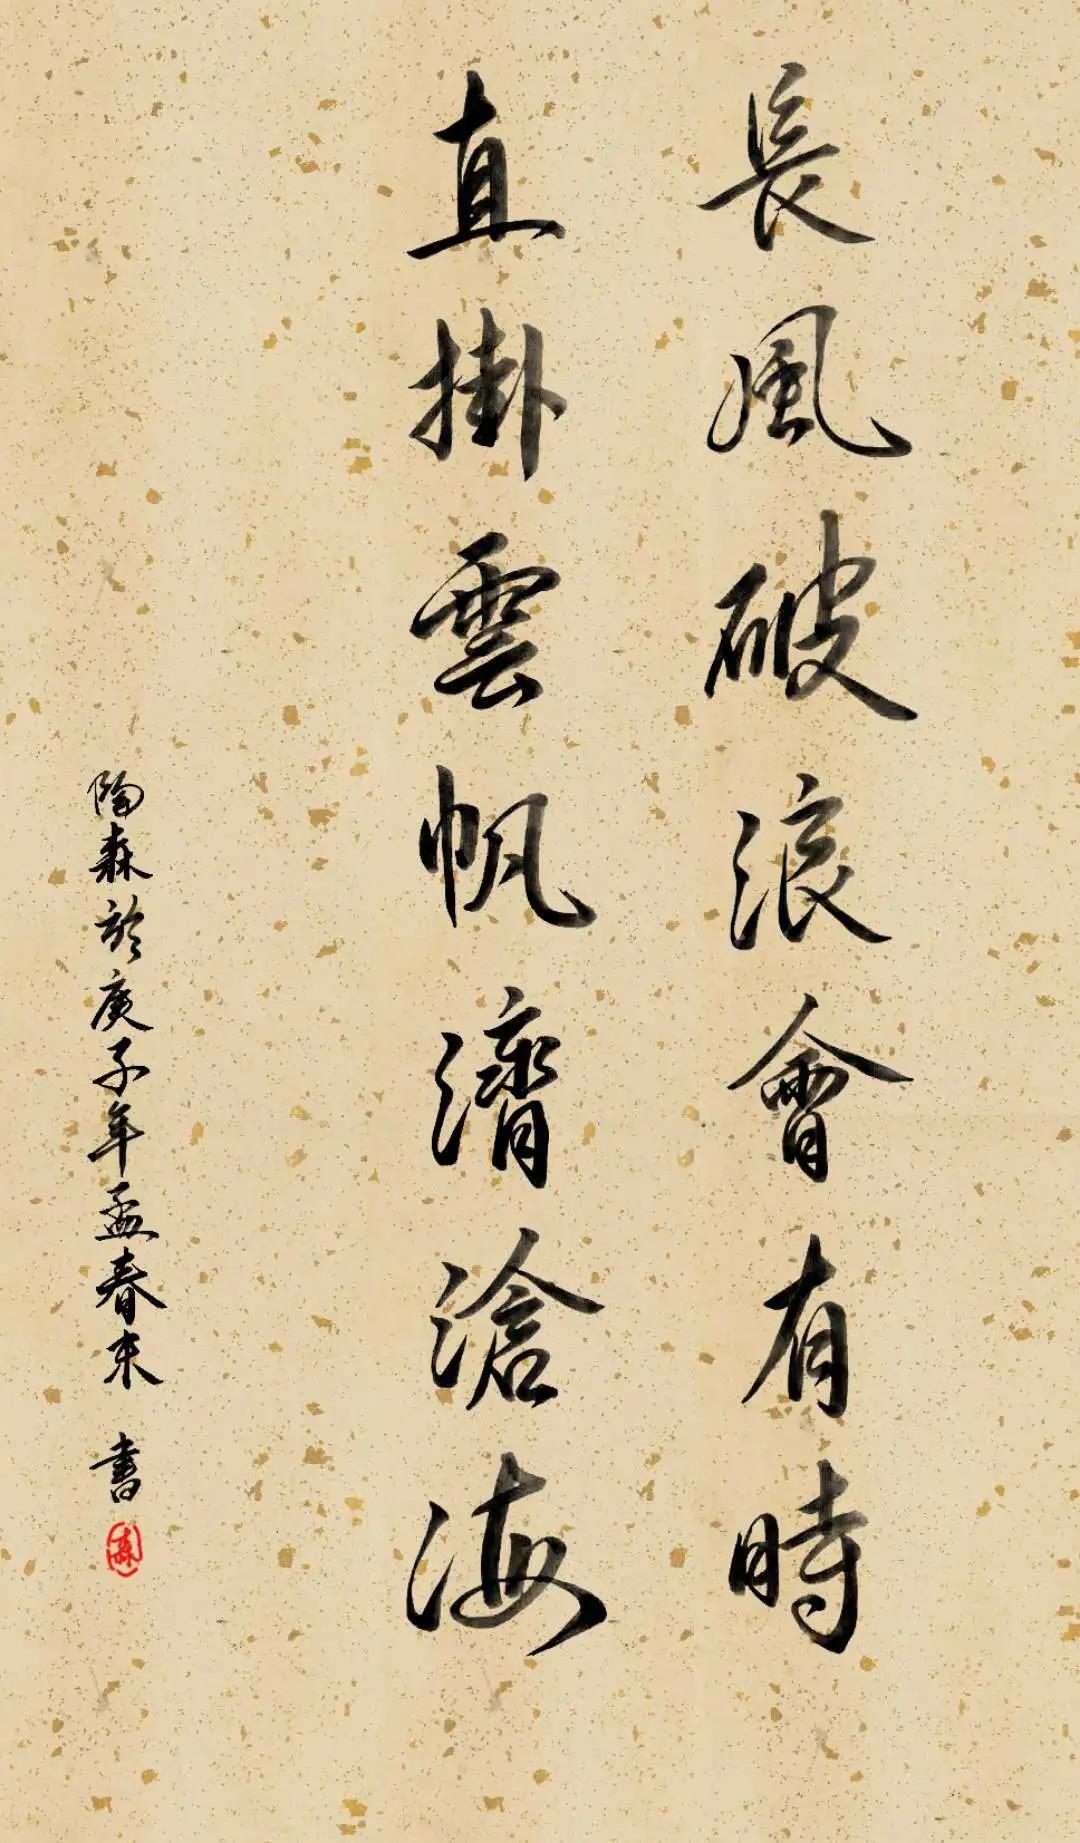 長風破浪會有時
直掛雲帆濟滄海
陶森於庚子年孟春末 書
森